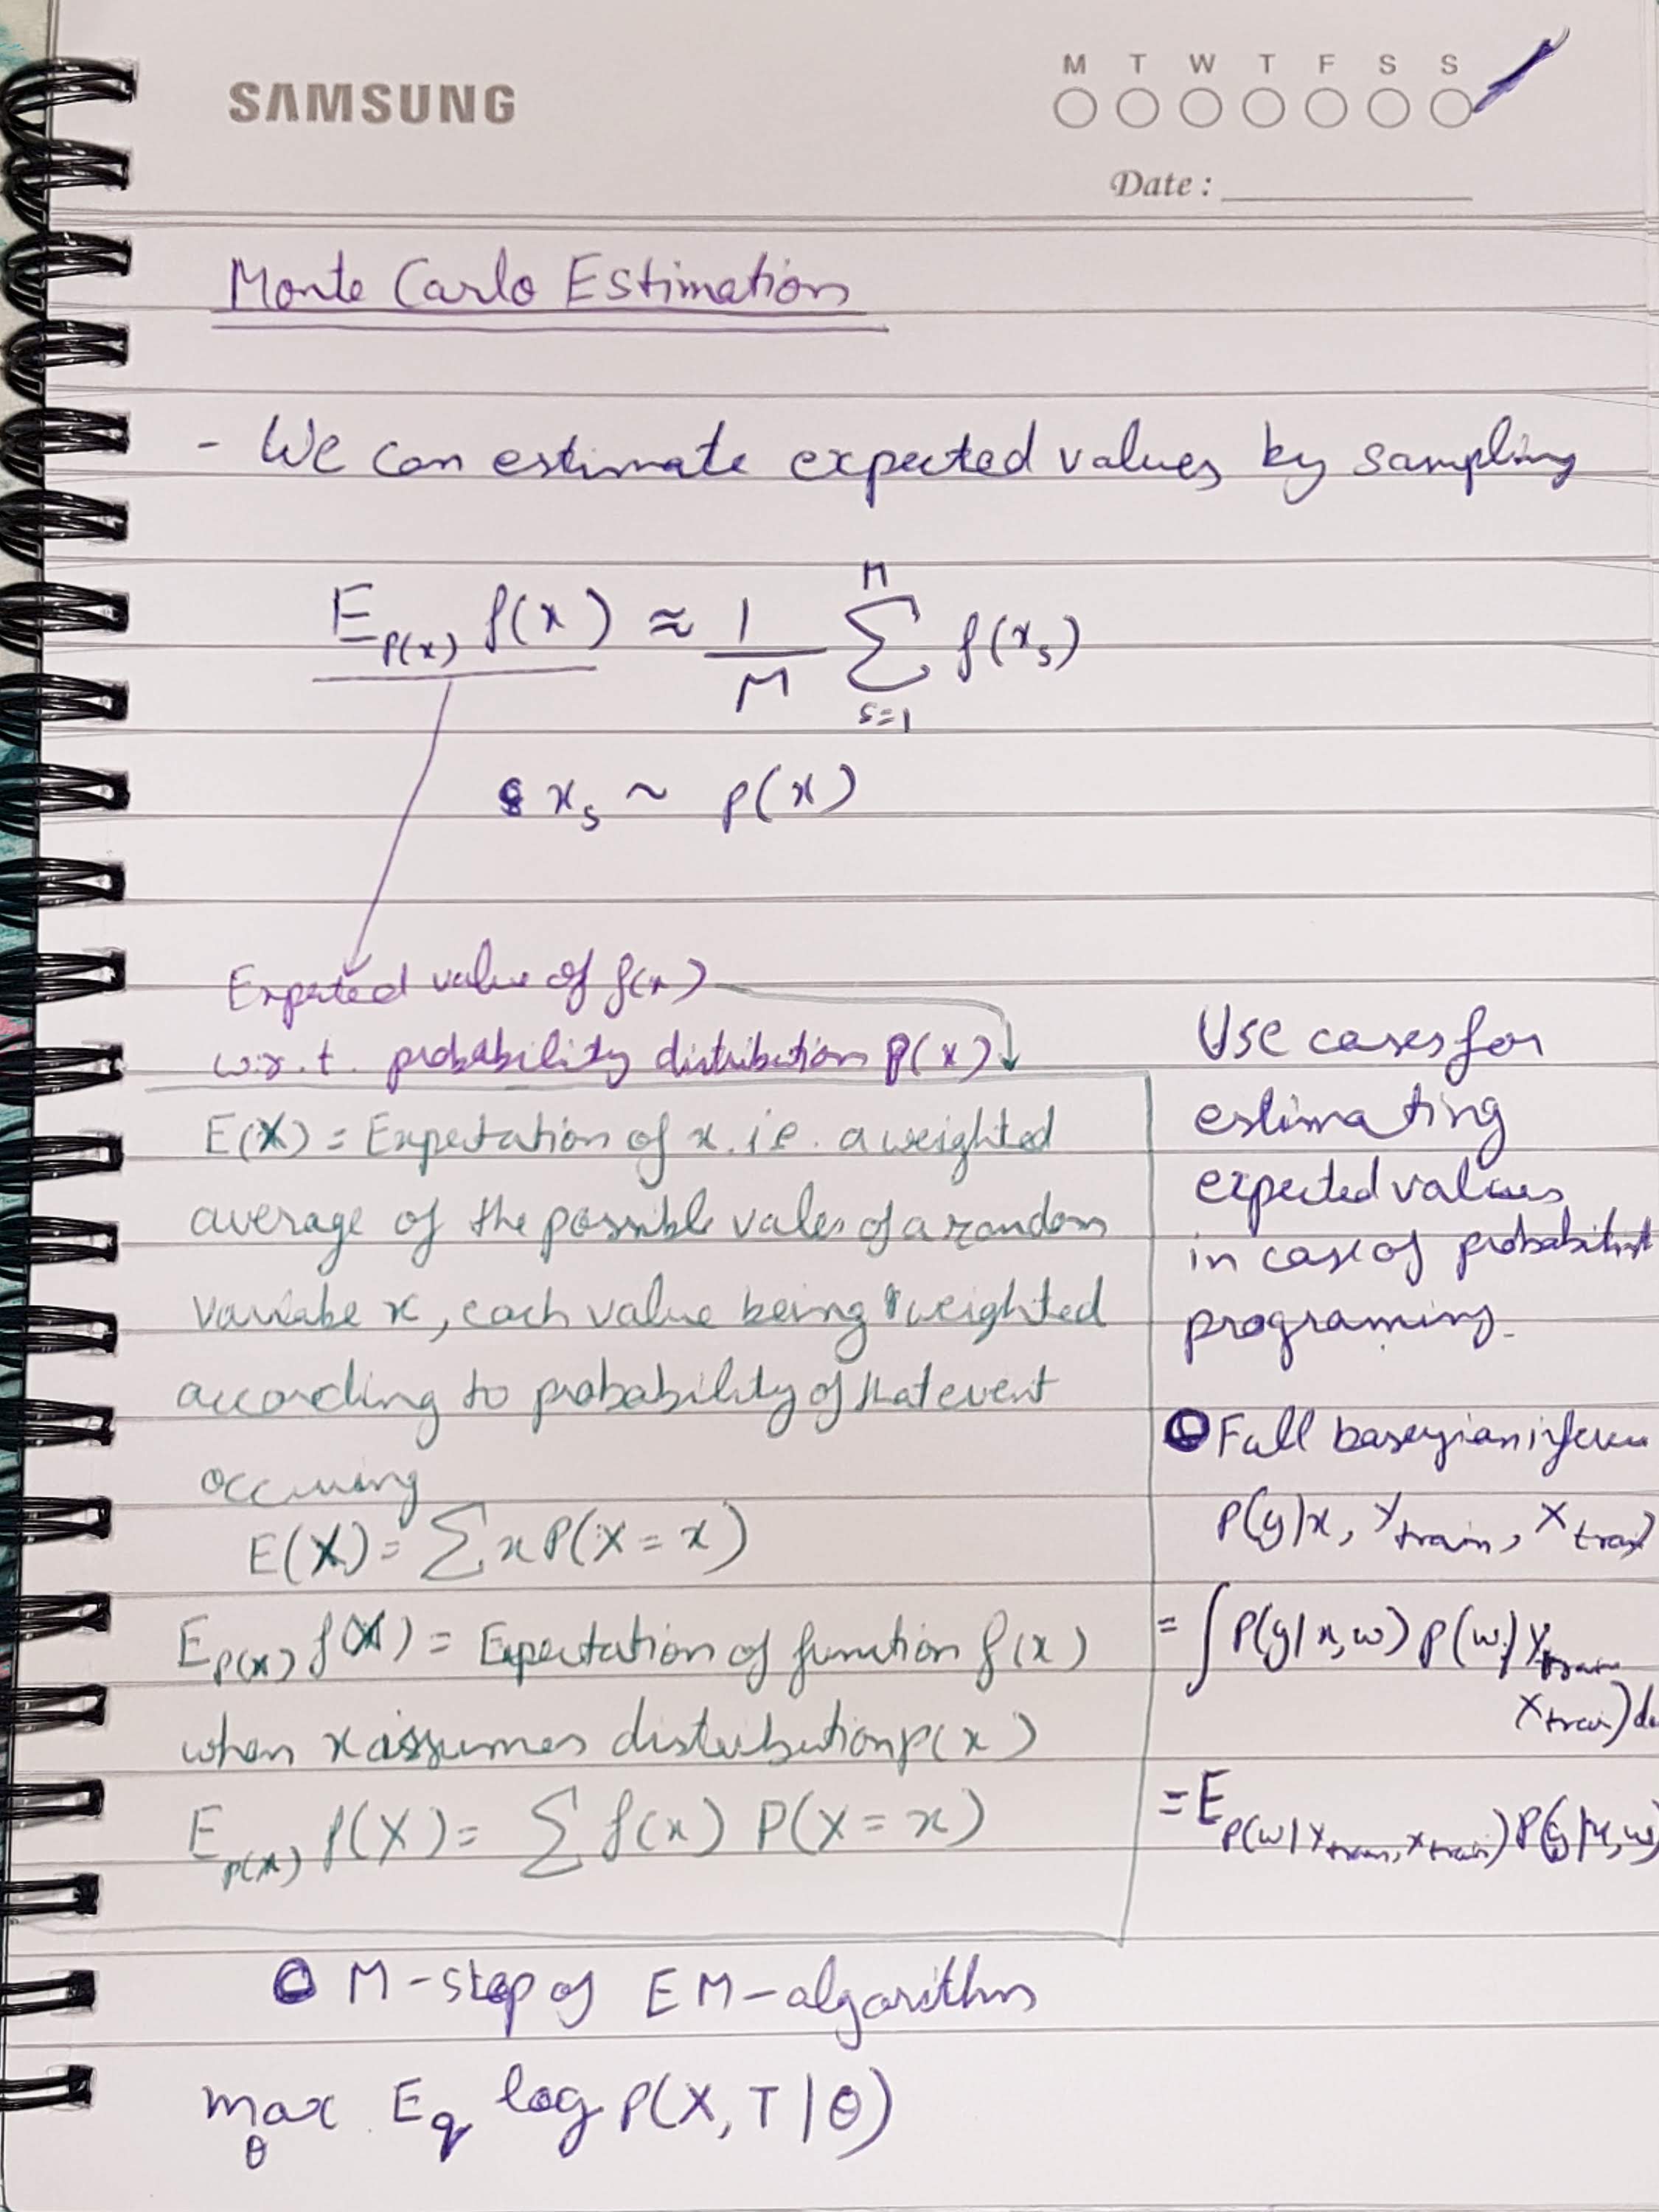 SAMSUNG
M T W T F S S
Date :
Monte Carlo Estimation
- We can estimate expected values by sampling
E_{p(x)} f(x) ≈ 1/M Σ_{s=1}^{M} f(x_s)
x_s ~ p(x)
Expected value of f(x)
w.r.t. probability distribution p(x)
E(X) = Expectation of x. i.e. a weighted
average of the possible vales of a random
variabe x, each value being weighted
according to probability of that event
occuring
E(X) = Σ x P(X = x)
E_{P(x)} f(X) = Expectation of function f(x)
when x assumes distribution p(x)
E_{p(x)} f(X) = Σ f(x) P(X = x)
Use cases for
estimating
expected values
in case of probabilist
programing.
Full baseyian inferen
P(y|x, Y_train, X_train)
= ∫ P(y|x,w) p(w|Y_train
X_train) dw
= E_{P(w|Y_train, X_train)} P(y|x,w)
M-step of EM-algorithm
max_θ E_q log P(X, T | θ)